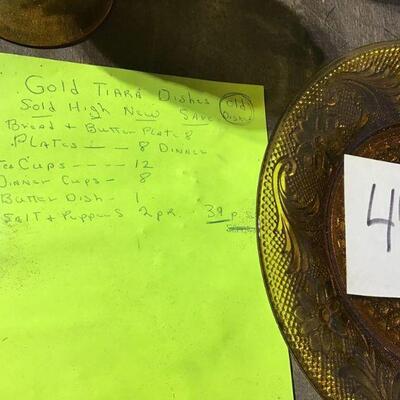 Gold TIARA Dishes
Sold High New SAVE Old Dishes
Bread + Butter Plate 8
PLATES —— 8 DINNER
Tea Cups ---- 12
Dinner Cups - 8
Butter Dish - 1
SALT + Peppers 2 pr. 39 p
4